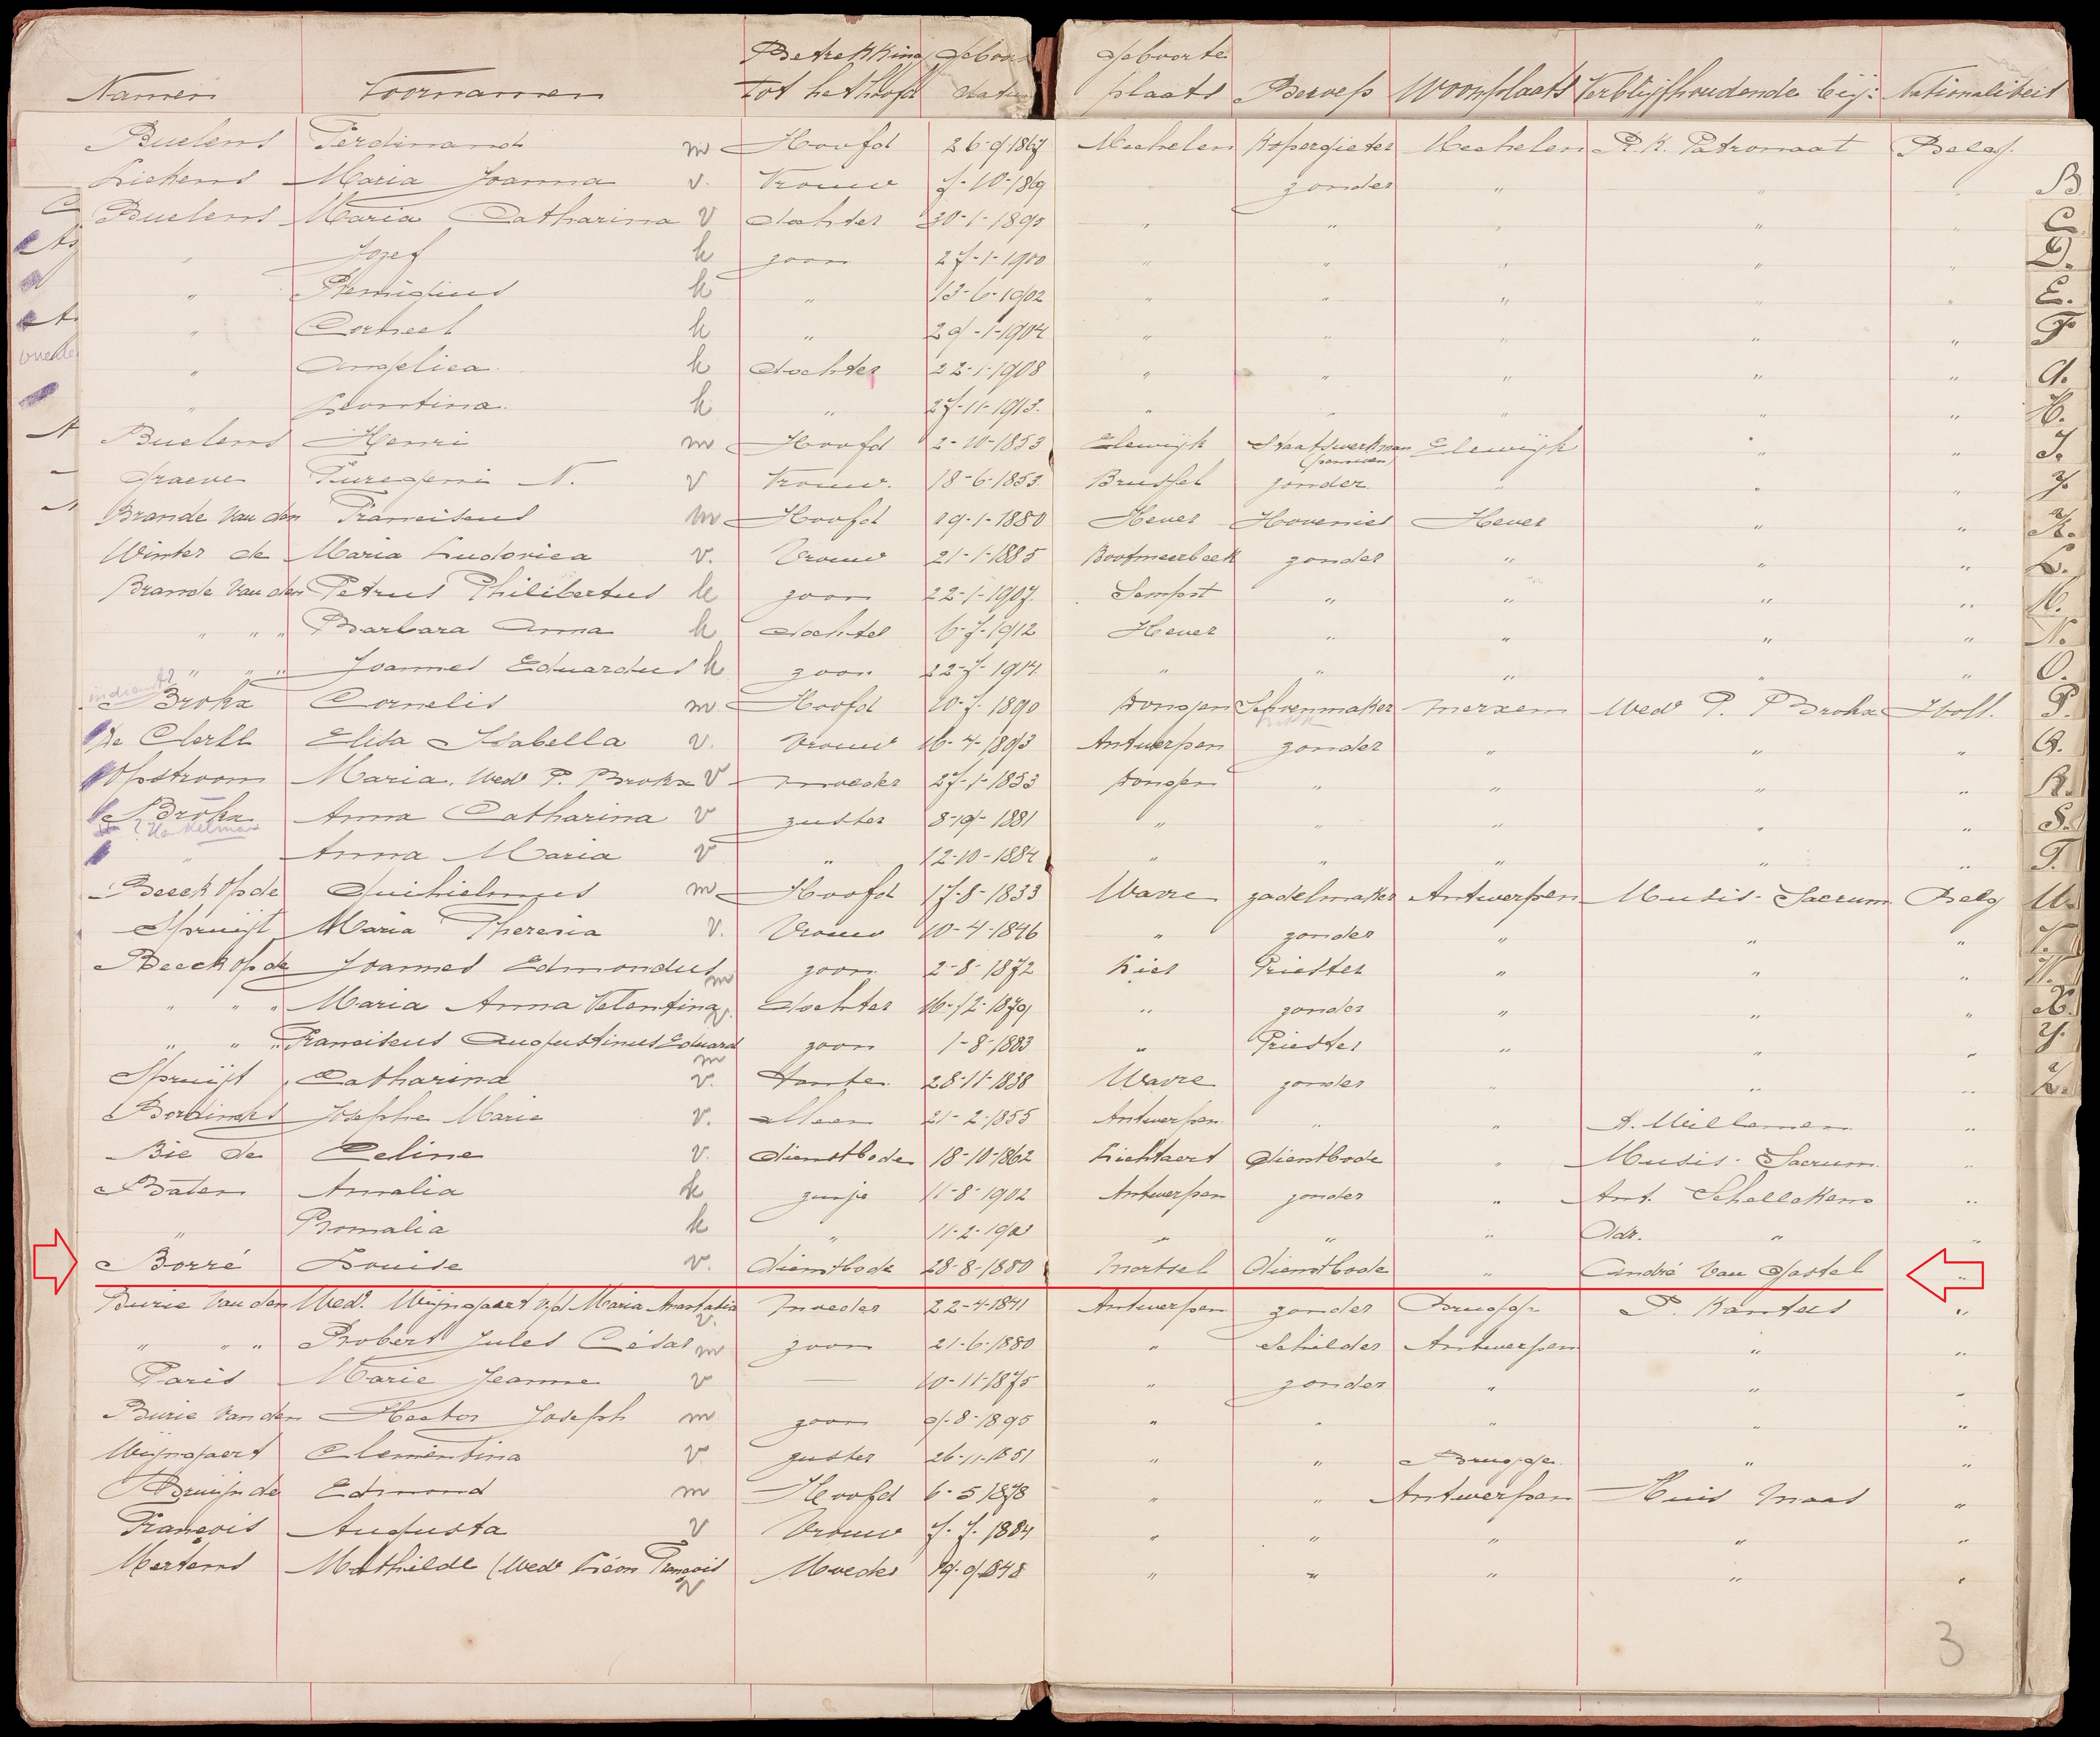 Namen Voornamen Betrekking tot het hoofd Geboorte plaats Beroep Woonplaats Verblijfhoudende bij: Nationaliteit
Buelens Ferdinand m Hoofd 26-9-1867 Mechelen Kopergieter Mechelen R.K. Patronaat Belg.
Liekens Maria Joanna v. Vrouw 7-10-1869 " zonder " " " B.
Buelens Maria Catharina v dochter 30-1-1895 " " " " " C.
" Jozef k zoon 27-1-1900 " " " " " D.
" Remigius k " 13-6-1902 " " " " " E.
" Corneel k " 29-1-1904 " " " " " F
" Angelica k dochter 22-1-1908 " " " " " G.
" Leontina k " 27-11-1913. " " " " " H.
Buelens Henri m Hoofd 2-10-1853 Elewijk Staatswerkman Elewijk " " I.
(pensioen)
Graeve N. v Vrouw. 18-6-1853. Brussel zonder. " " " J.
Brande Van den Franciscus m Hoofd 29-1-1880 Hever Hovenier Hever " " K.
Winter de Maria Ludovica v. Vrouw 21-1-1885 Boortmeerbeek zonder " " " L.
Brande Van den Petrus Philibertus k zoon 22-1-1907. Sempst " " " " M.
" " " Barbara Anna k dochter 6-7-1912 Hever " " " " N.
" " " Joannes Eduardus k zoon 22-7-1914 " " " " " O.
Brokx Cornelis m Hoofd 10-7-1890 Dongen Schoenmaker Merxem Wed. P. Brokx Holl. P.
De Clerck Elisa Isabella v. Vrouw 16-4-1893 Antwerpen zonder " " " Q.
Opstroom Maria. Wed. P. Brokx v moeder 27-1-1853 Dongen " " " " R.
Brokx Anna Catharina v zuster 8-9-1881 " " " " " S.
" Anna Maria v " 12-10-1884 " " " " " T.
Beeck op de Guilielmus m Hoofd 17-8-1833 Wavre zadelmaker Antwerpen Musis-Sacrum Belg U.
Spruijt Maria Theresia v. Vrouw 10-4-1846 " zonder " " " V.
Beeck op de Joannes Edmondus m zoon 2-8-1872 Lier Priester " " " W.
" " " Maria Anna Valentina v. dochter 16-12-1879 " zonder " " " X.
" " " Franciscus Augustinus Eduard m zoon 1-8-1883 " Priester " " " Y.
Spruijt Catharina v. Tante 28-11-1838 Wavre zonder " " " Z.
Josephe Marie v. alleen 21-2-1855 Antwerpen " " A. Willemen "
Bie de Celine v. dienstbode 18-10-1862 Lichtaert dienstbode " Musis-Sacrum "
Baten Amalia k 11-8-1902 Antwerpen zonder " Ant. Schellekens "
" Romalia k " 11-2-190 " " " Adr. " "
Borré Louise v. dienstbode 28-8-1880 Mortsel dienstbode " André Van Gastel "
Burie Van den Wed. Wijngaert v/d Maria Anastasia v. moeder 22-4-1841 Antwerpen zonder Brugge P. Kanters "
" " " Robert Jules César m zoon 21-6-1880 " Schilder Antwerpen " "
Paris Marie Jeanne v — 10-11-1875 " zonder " " "
Burie Van den Hector Joseph m zoon 9-8-1895 " " " " "
Wijngaert Clementina v. zuster 26-11-1851 " " Brugge " "
Bruijn de Edmond m Hoofd 6-5-1878 " " Antwerpen Huis Maas "
François Augusta v Vrouw 7-7-1884 " " " " "
Mertens Mathilde (Wed. Léon François v Moeder 19-9-1848 " " " " "
3